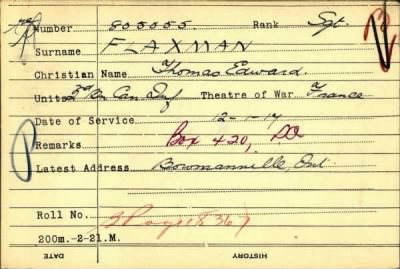 Number 805055 Rank Sgt.
Surname FLAXMAN
Christian Name Thomas Edward.
Units 2d Bn Can Inf Theatre of War France
Date of Service 12-1-17
Remarks Box 420, DO
Latest Address Bowmanville, Ont
Roll No. B Page 18367
200m.-2-21.M.
DATE HISTORY